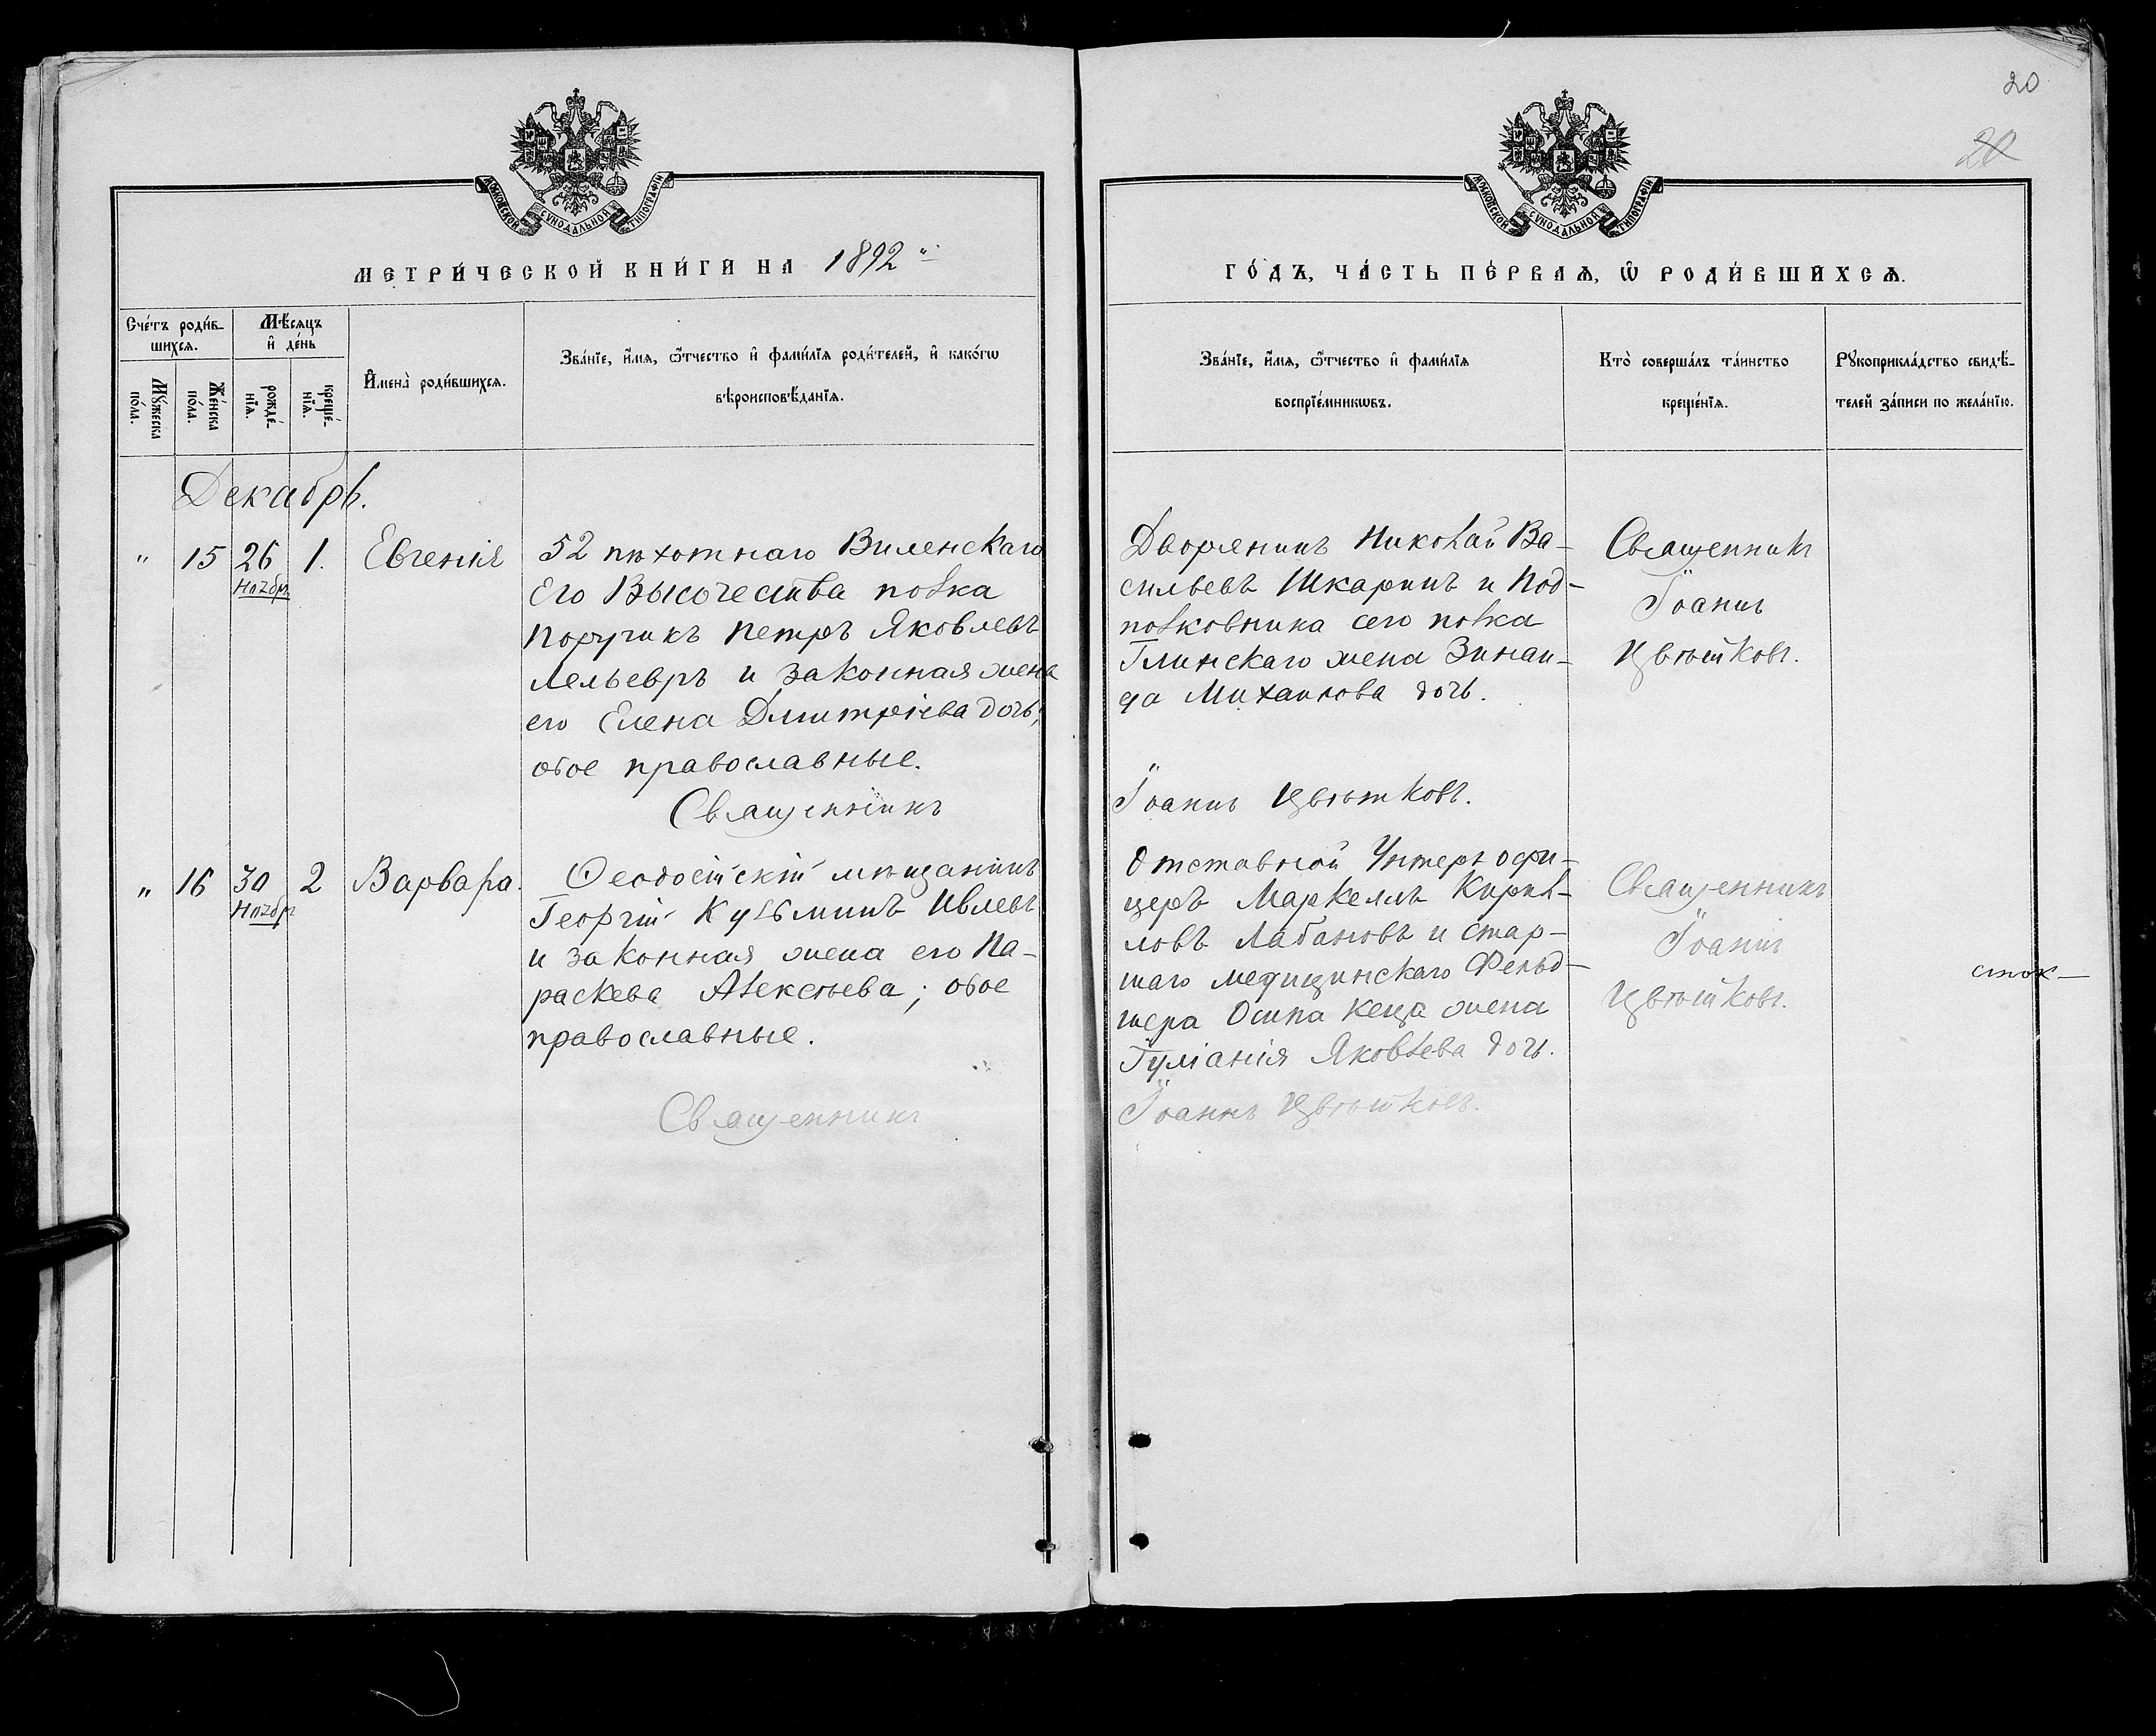 20
20
МОСКОВСКОЙ СѴНОДАЛЬНОЙ ТИПОГРАФІИ
МОСКОВСКОЙ СѴНОДАЛЬНОЙ ТИПОГРАФІИ
МЕТРИ́ЧЕСКОЙ КНИ́ГИ НА 1892
ГО́ДЪ, ЧА́СТЬ ПЕ́РВАѦ, Ѡ РОДИ́ВШИХСѦ.
Сче́тъ роди́в-
шихсѧ.
Мѣ́сѧцъ
и҆ де́нь
Мꙋ́жеска
по́ла.
Же́нска
по́ла.
рожде́-
нїѧ.
креще́-
нїѧ.
И҆мена̀ роди́вшихсѧ.
Зва́нїе, и҆́мѧ, ѻ҆́тчество и҆ фами́лїѧ роди́телей, и҆ како́гѡ
вѣроисповѣ́данїѧ.
Зва́нїе, и҆́мѧ, ѻ҆́тчество и҆ фами́лїѧ
воспрїе́мникѡвъ.
Кто̀ соверша́лъ та́инство
креще́нїѧ.
Рꙋкоприкла́дство свидѣ́-
телей за́писи по жела́нїю.
Декабрь.
" 15 26 1. Евгенія
Ноябр.
52 пѣхотнаго Виленскаго
Его Высочества полка
Поручикъ Петръ Яковлевъ
Лельевръ и законная жена
его Елена Дмитріева дочь;
обое православные.
Священникъ
Дворянинъ Николай Ва-
сильевъ Шкаринъ и Под-
полковника сего полка
Глинскаго жена Зинаи-
да Михаилова дочь.
Іоаннъ Цвѣтковъ.
Священникъ
Іоаннъ
Цвѣтковъ.
" 16 30 2 Варвара.
Ноябр
Ѳеодосійскій мѣщанинъ
Георгій Кузьминъ Ивлевъ
и законная жена его Па-
раскева Алексѣева; обое
православные.
Священникъ
Отставной Унтеръ офи-
церъ Маркеллъ Кирил-
ловъ Лабановъ и стар-
шаго медицинскаго Фельд-
шера Осипа Кенца жена
Іуліанія Яковлева дочь.
Іоаннъ Цвѣтковъ.
Священникъ
Іоаннъ
Цвѣтковъ.